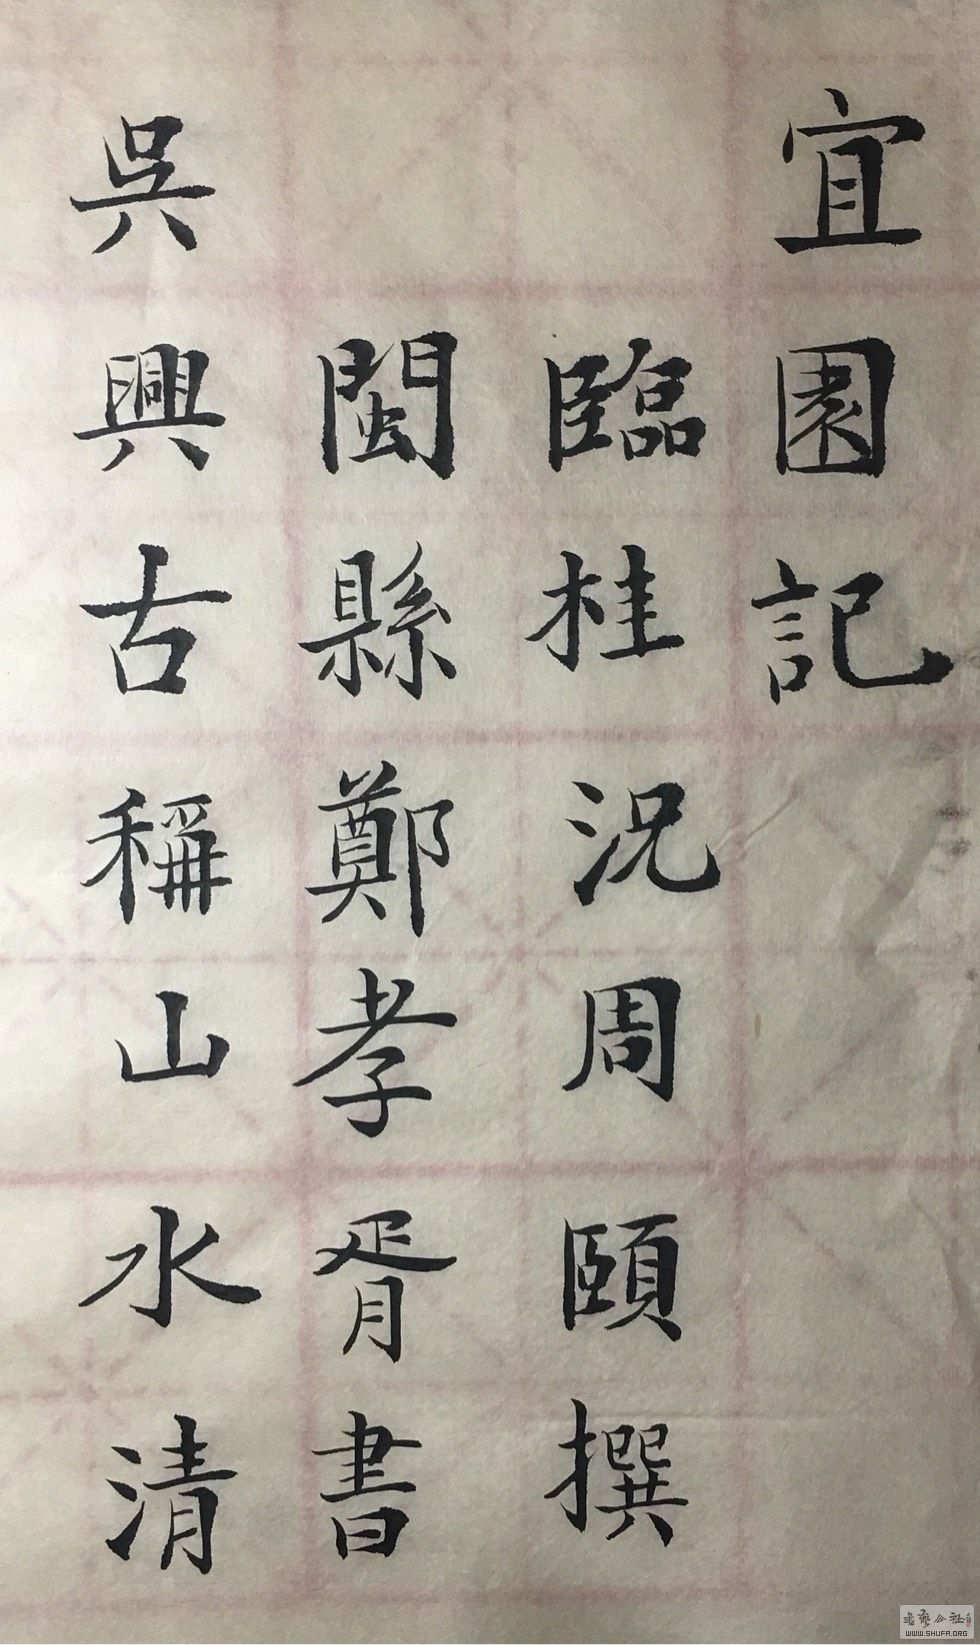 宜園記
臨桂況周頤撰
閩縣鄭孝胥書
吳興古稱山水清
WWW.SHUFA.ORG